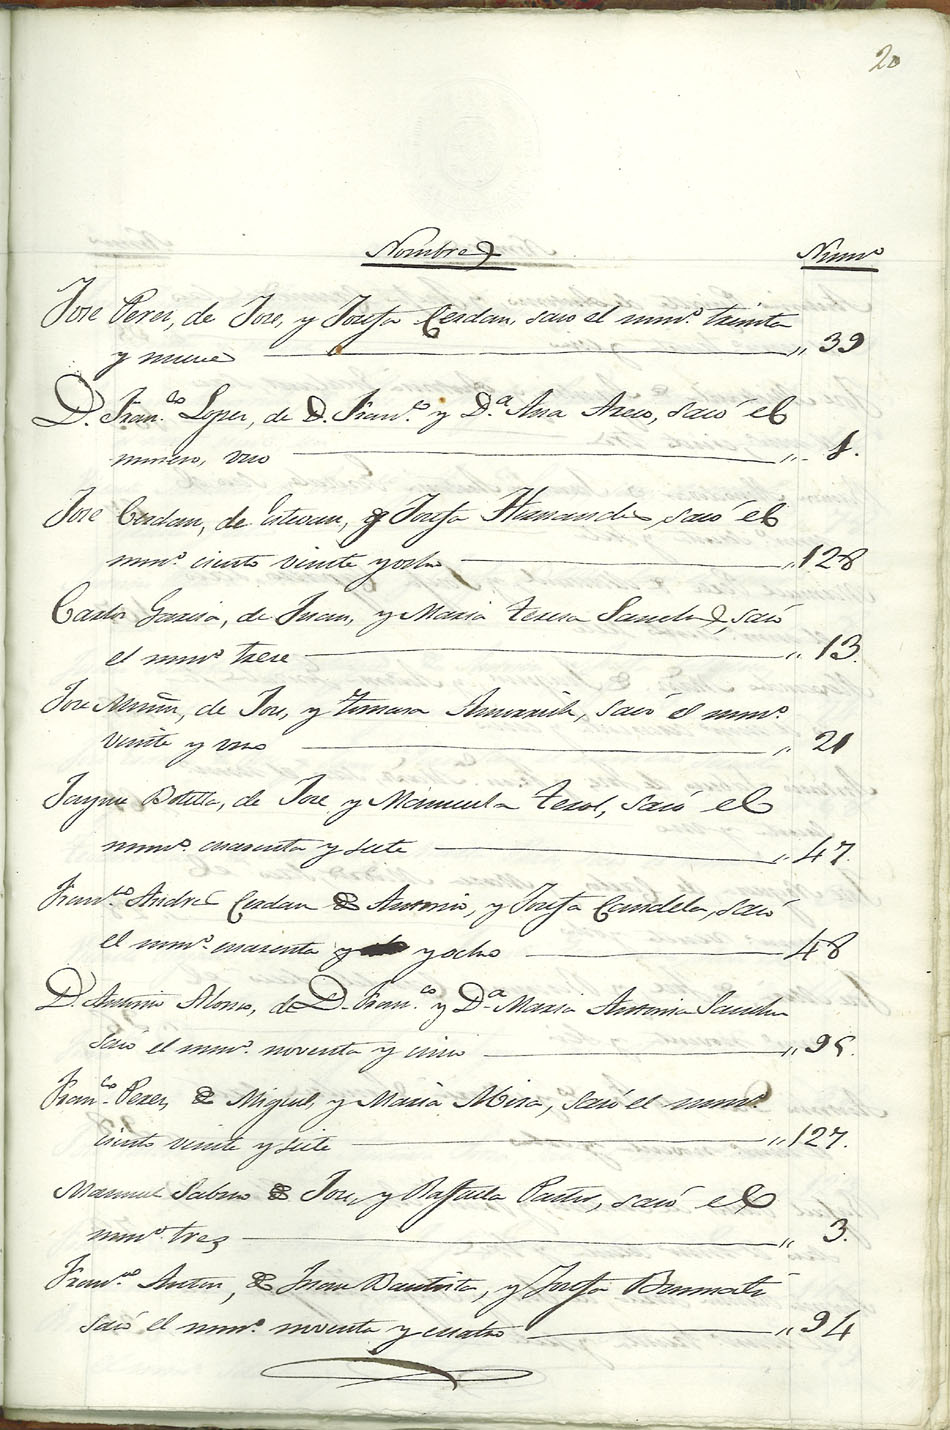 20
Nombres Nums
Jose Perez, de Jose, y Josefa Cerdan, saco el numo. treinta
y nueve 39
D. Franco. Lopez, de D. Franco. y Da. Ana, sacó el
numero, uno 1.
Jose Cerdan, de Estevan, y Josefa Hernandes, sacó el
numo. ciento veinte y ocho 128
Carlos Garcia, de Juan, y Maria Teresa Sanches, sacó
el numo. trece 13.
Jose, de Jose, y Tomasa, sacó el numo.
veinte y uno 21
Jayme Botella, de Jose y Manuela Terol, sacó el
numo. cuarenta y siete 47.
Franco. Andres Cerdan de Antonio, y Josefa Candela, sacó
el numo. cuarenta y ocho 48
D. Antonio Alonso, de D. Franco. y Da. Maria Antonia Sanches
sacó el numo. noventa y cinco 95.
Franco. Perez, de Miguel, y Maria Mira, sacó el numo.
ciento veinte y siete 127.
Manuel Sabno de Jose, y Raffaela Pastor, sacó el
numo. tres 3.
Franco. Anton, de Juan Bautista, y Josefa Benmati
sacó el numo. noventa y cuatro 94